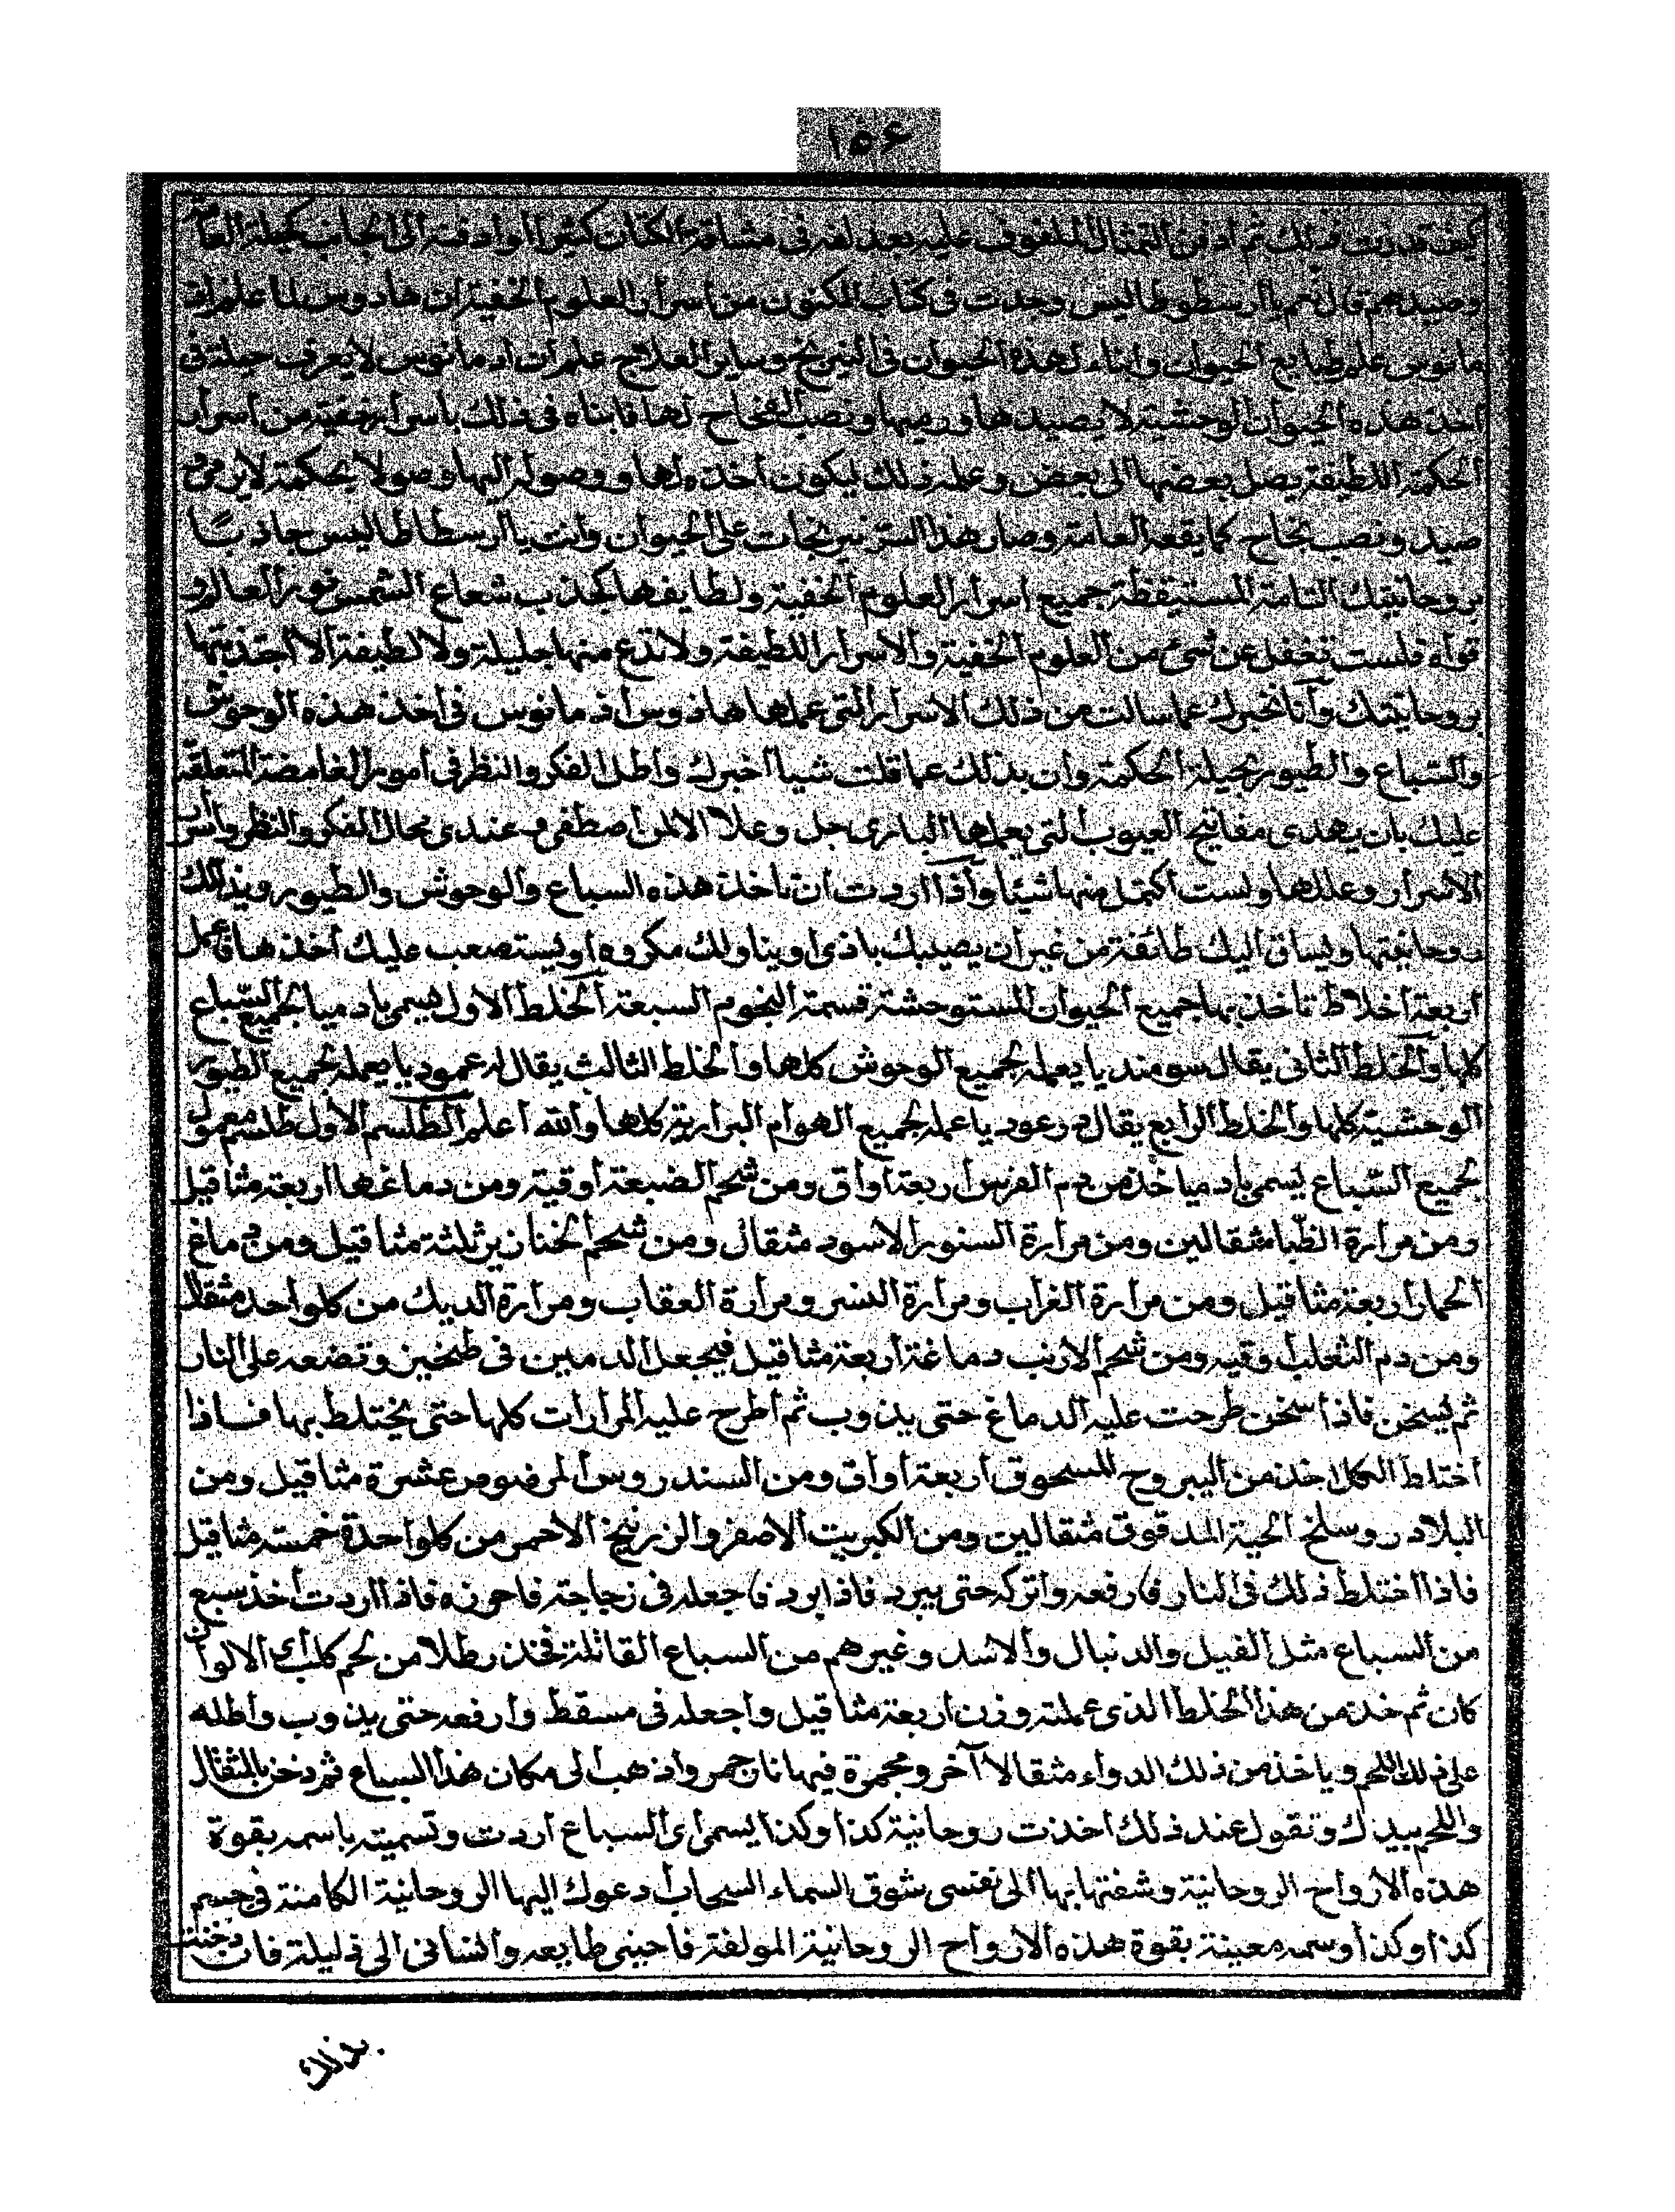 ١٥۶
كيف قدرت فذلك ثم ادفن التمثال الملفوف عليه بعد لفه فى مشاقة الكتان كثير الوادفنه الى الجانب كحيلة العامة
وصيدهم قال نعم يا ارسطوطاليس وجدت فى كتاب المكنون من اسرار العلوم الخفية ان هادوس لما علم اد
مانوس علم طبايع الحيوان وابناء لهذه الحيوان فى النيرنج وساير العلاج علم ان ادمانوس لا يعرف حيلة فى
اخذ هذه الحيوان الوحشية لا يصيدها ورميها ونصب الفخاخ لها فابناه فى ذلك باسرار خفية من اسرار
الحكمة اللطيفة يصل بعضها الى بعض وعلمه ذلك ليكون اخذه لها ووصوله اليها وصولا بحكمة لا يرمى و
صيد ونصب فخاخ كما يقعه العامة وصار هذا الستر نيرنجات على الحيوان وانت يا ارسطاطاليس جاذبًا
بروحانيتك التامة المستيقظة جميع اسرار العلوم الخفية ولطايفها كجذب شعاع الشمس نور العالم و
قواه فلست تغفل عن شئ من العلوم الخفية والاسرار اللطيفة ولا تدع منها جليلة ولا لطيفة الا اجتذبتها
بروحانيتك وانا نخبرك عما سالت من ذلك الاسرار التى عملها هاذوس اذمانوس فى اخذ هذه الوحوش
والسباع والطيور بحيلة الحكمة وان بذلك عما قلت شيا اخبرك واطل الفكر والنظر فى امور الغامضة المتعلقة
عليك بان يهدى مفاتيح العيوب التى يعملها البارى جل وعلا الا لمن اصطفى و عندى مجال الفكر والنظر واس
الاسرار وعللها ولست اكتمل منها شيئا واذا اردت ان تاخذ هذه السباع والوحوش والطيور وبذلك
روحانيتها ويساق اليك طائفة من غير ان يصيبك باذى او يناولك مكروه او يستصعب عليك اخذها فاعمل
اربعة اخلاط تاخذ بها جميع الحيوان المستوحشة قسمة النجوم السبعة الخلط الاول يسمى بادميا لجميع السباع
كلها والخلط الثانى يقال سومنديا يعمله لجميع الوحوش كلها والخلط الثالث يقال له عموديا يعمله لجميع الطيور
الوحشية كلها والخلط الرابع يقال درعوديا عمله لجميع الهوام البرارية كلها والله اعلم الطلسم الاول طلسم معمول
لجميع السباع يسمى بادميا خذ من دم الفرس اربعة اواق ومن شحم الضبعة اوقية ومن دماغها اربعة مثاقيل
ومن مرارة الظبا مثقالين ومن مرارة السنور الاسود مثقال ومن شحم الخنازير ثلثة مثاقيل ومن دماغ
الحمار اربعة مثاقيل ومن مرارة الغراب ومرارة النسر ومرارة العقاب ومرارة الديك من كل واحد مثقال
ومن دم الثعلب وقيه ومن شحم الارنب دماغة اربعة مثاقيل فيجعل الدمين فى طنجير وتضعه على النار
ثم يسخن فاذا سخن طرحت عليه الدماغ حتى يذوب ثم اطرح عليه المرارات كلها حتى يختلط بها فاذا
اختلط الكل اخذ من اليبروح المسحوق اربعة اواق ومن السندروس المرضوض عشرة مثاقيل ومن
البلادر وسلخ الحية المدقوق مثقالين ومن الكبريت الاصفر والزرنيخ الاحمر من كل واحدة خمسه مثاقيل
فاذا اختلط ذلك فى النار فارفعه واتركه حتى يبرد فاذا برد فاجعله فى زجاجة فاحرزه فاذا اردت اخذ سبع
من السباع مثل الفيل والدنبال والاسد وغيرهم من السباع القاتلة فخذ رطلا من لحم كلب اى الالوان
كان ثم خذ من هذا الخلط الذى عملته وزن اربعة مثاقيل واجعله فى مسقط وارفعه حتى يذوب واطله
على ذلك اللحم وياخذ من ذلك الدواء مثقالا آخر ومجمرة فيها نار جمر واذهب الى مكان هذا السباع ثم دخن بالمثقال
واللحم بيدك وتقول عند ذلك اخذت روحانية كذا وكذا يسمى اى السباع اردت وتسميته باسمه بقوة
هذه الارواح الروحانية وشفتها بها الى نفسى شوق السماء السحاب ادعوك اليها الروحانية الكامنة فى جسم
كذا وكذا وسمه معينة بقوة هذه الارواح الروحانية المولفة فاحببى طايعه وانسانى الى ذليلة فان دخنت
بذلك